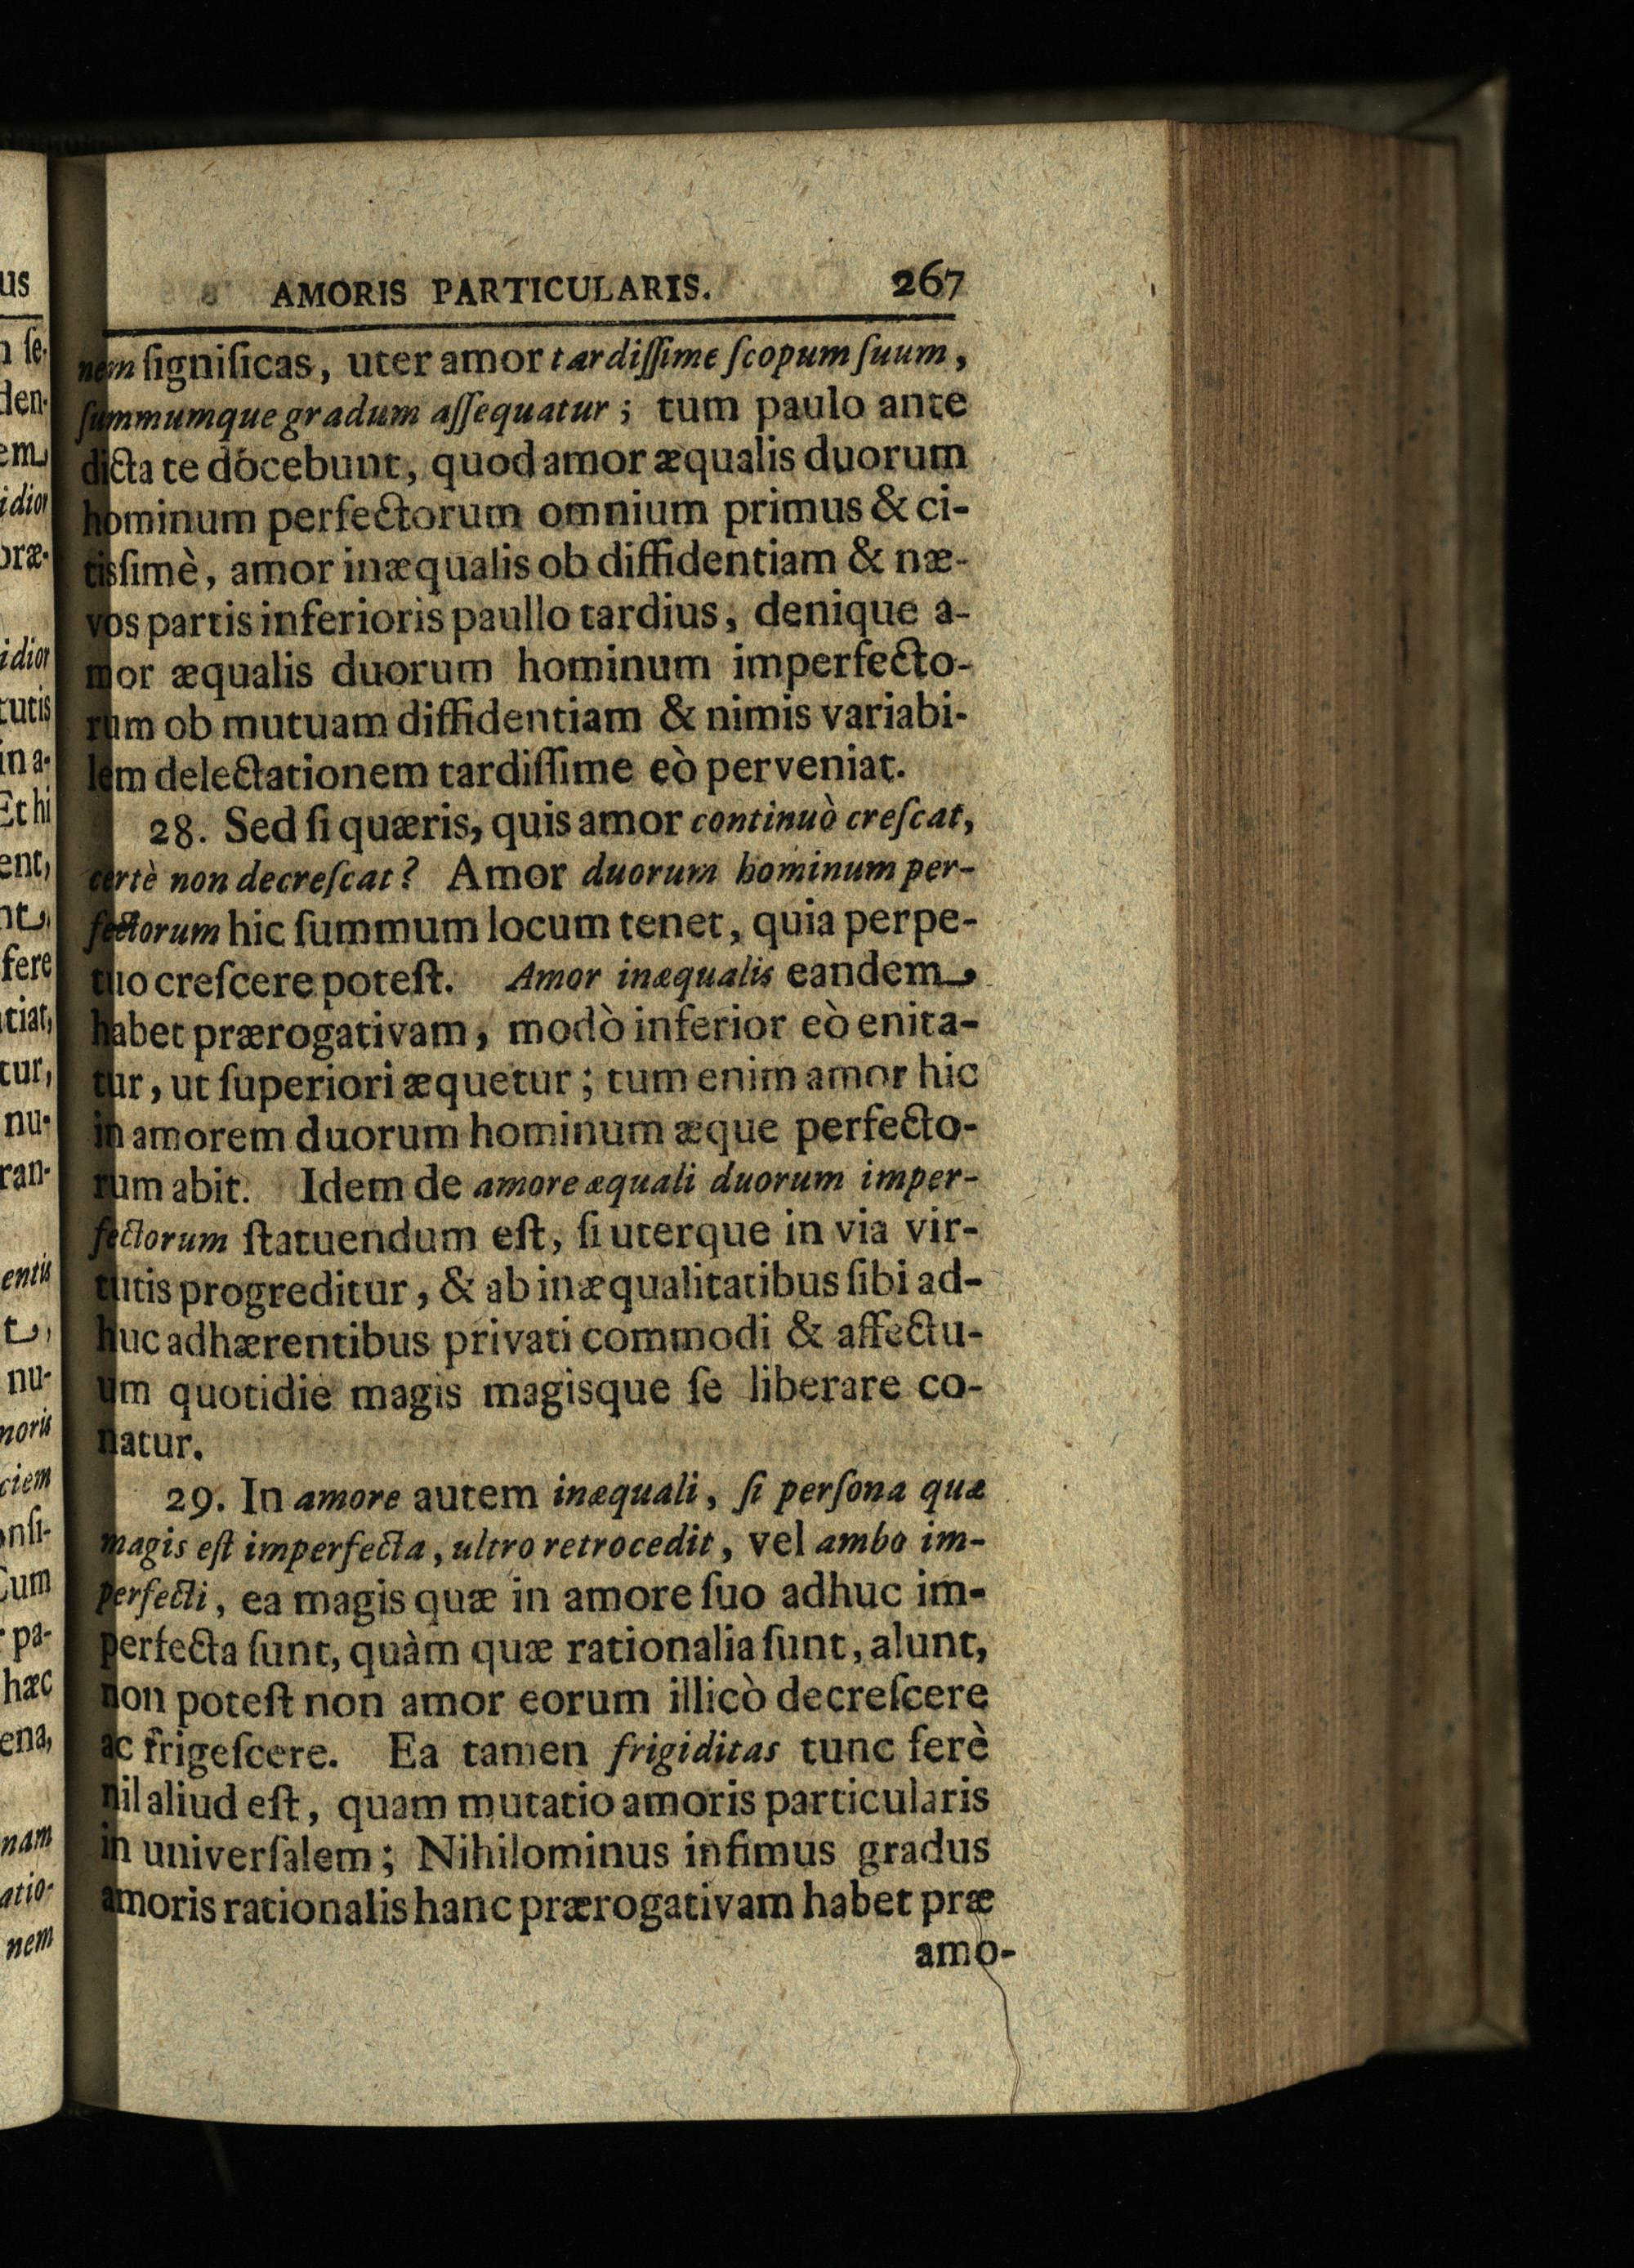 AMORIS PARTICULARIS. 267
nem ſigniſicas, uter amor tardiſſime ſcopum ſuum,
ſummumque gradum aſſequatur; tum paulo ante
dicta te docebunt, quod amor æqualis duorum
hominum perfectorum omnium primus & ci-
tisſimè, amor inæqualis ob diffidentiam & næ-
vos partis inferioris paullo tardius, denique a-
mor æqualis duorum hominum imperfecto-
rum ob mutuam diffidentiam & nimis variabi-
lem delectationem tardiſſime eò perveniat.
28. Sed ſi quæris, quis amor continuò creſcat,
certè non decreſcat? Amor duorum hominum per-
fectorum hic ſummum locum tenet, quia perpe-
tuo creſcere poteſt. Amor inæqualis eandem,
habet prærogativam, modò inferior eò enita-
tur, ut ſuperiori æquetur; tum enim amor hic
in amorem duorum hominum æque perfecto-
rum abit. Idem de amore æquali duorum imper-
fectorum ſtatuendum eſt, ſi uterque in via vir-
tutis progreditur, & ab inæqualitatibus ſibi ad-
huc adhærentibus privati commodi & affectu-
um quotidie magis magisque ſe liberare co-
natur.
29. In amore autem inæquali, ſi perſona quæ
magis eſt imperfecta, ultro retrocedit, vel ambo im-
perfecti, ea magis quæ in amore ſuo adhuc im-
perfecta ſunt, quàm quæ rationalia ſunt, alunt,
non poteſt non amor eorum illicò decreſcere
ac frigeſcere. Ea tamen frigiditas tunc ferè
nil aliud eſt, quam mutatio amoris particularis
in univerſalem; Nihilominus infimus gradus
amoris rationalis hanc prærogativam habet præ
amo-